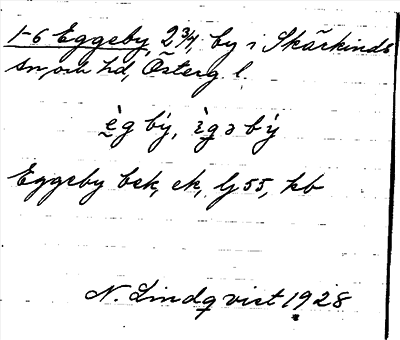 1-6 Eggeby, 2 3/4, by i Skärkinds
sn och hd, Österg. l.
è̠g bý, ìg̠ə bý
Eggeby bsk, ek, lj 55, kb
N. Lindqvist 1928